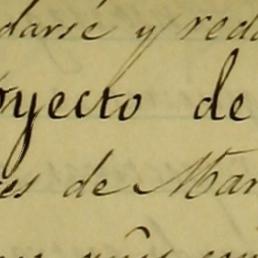 darse y reda
oyecto de
es de Mar